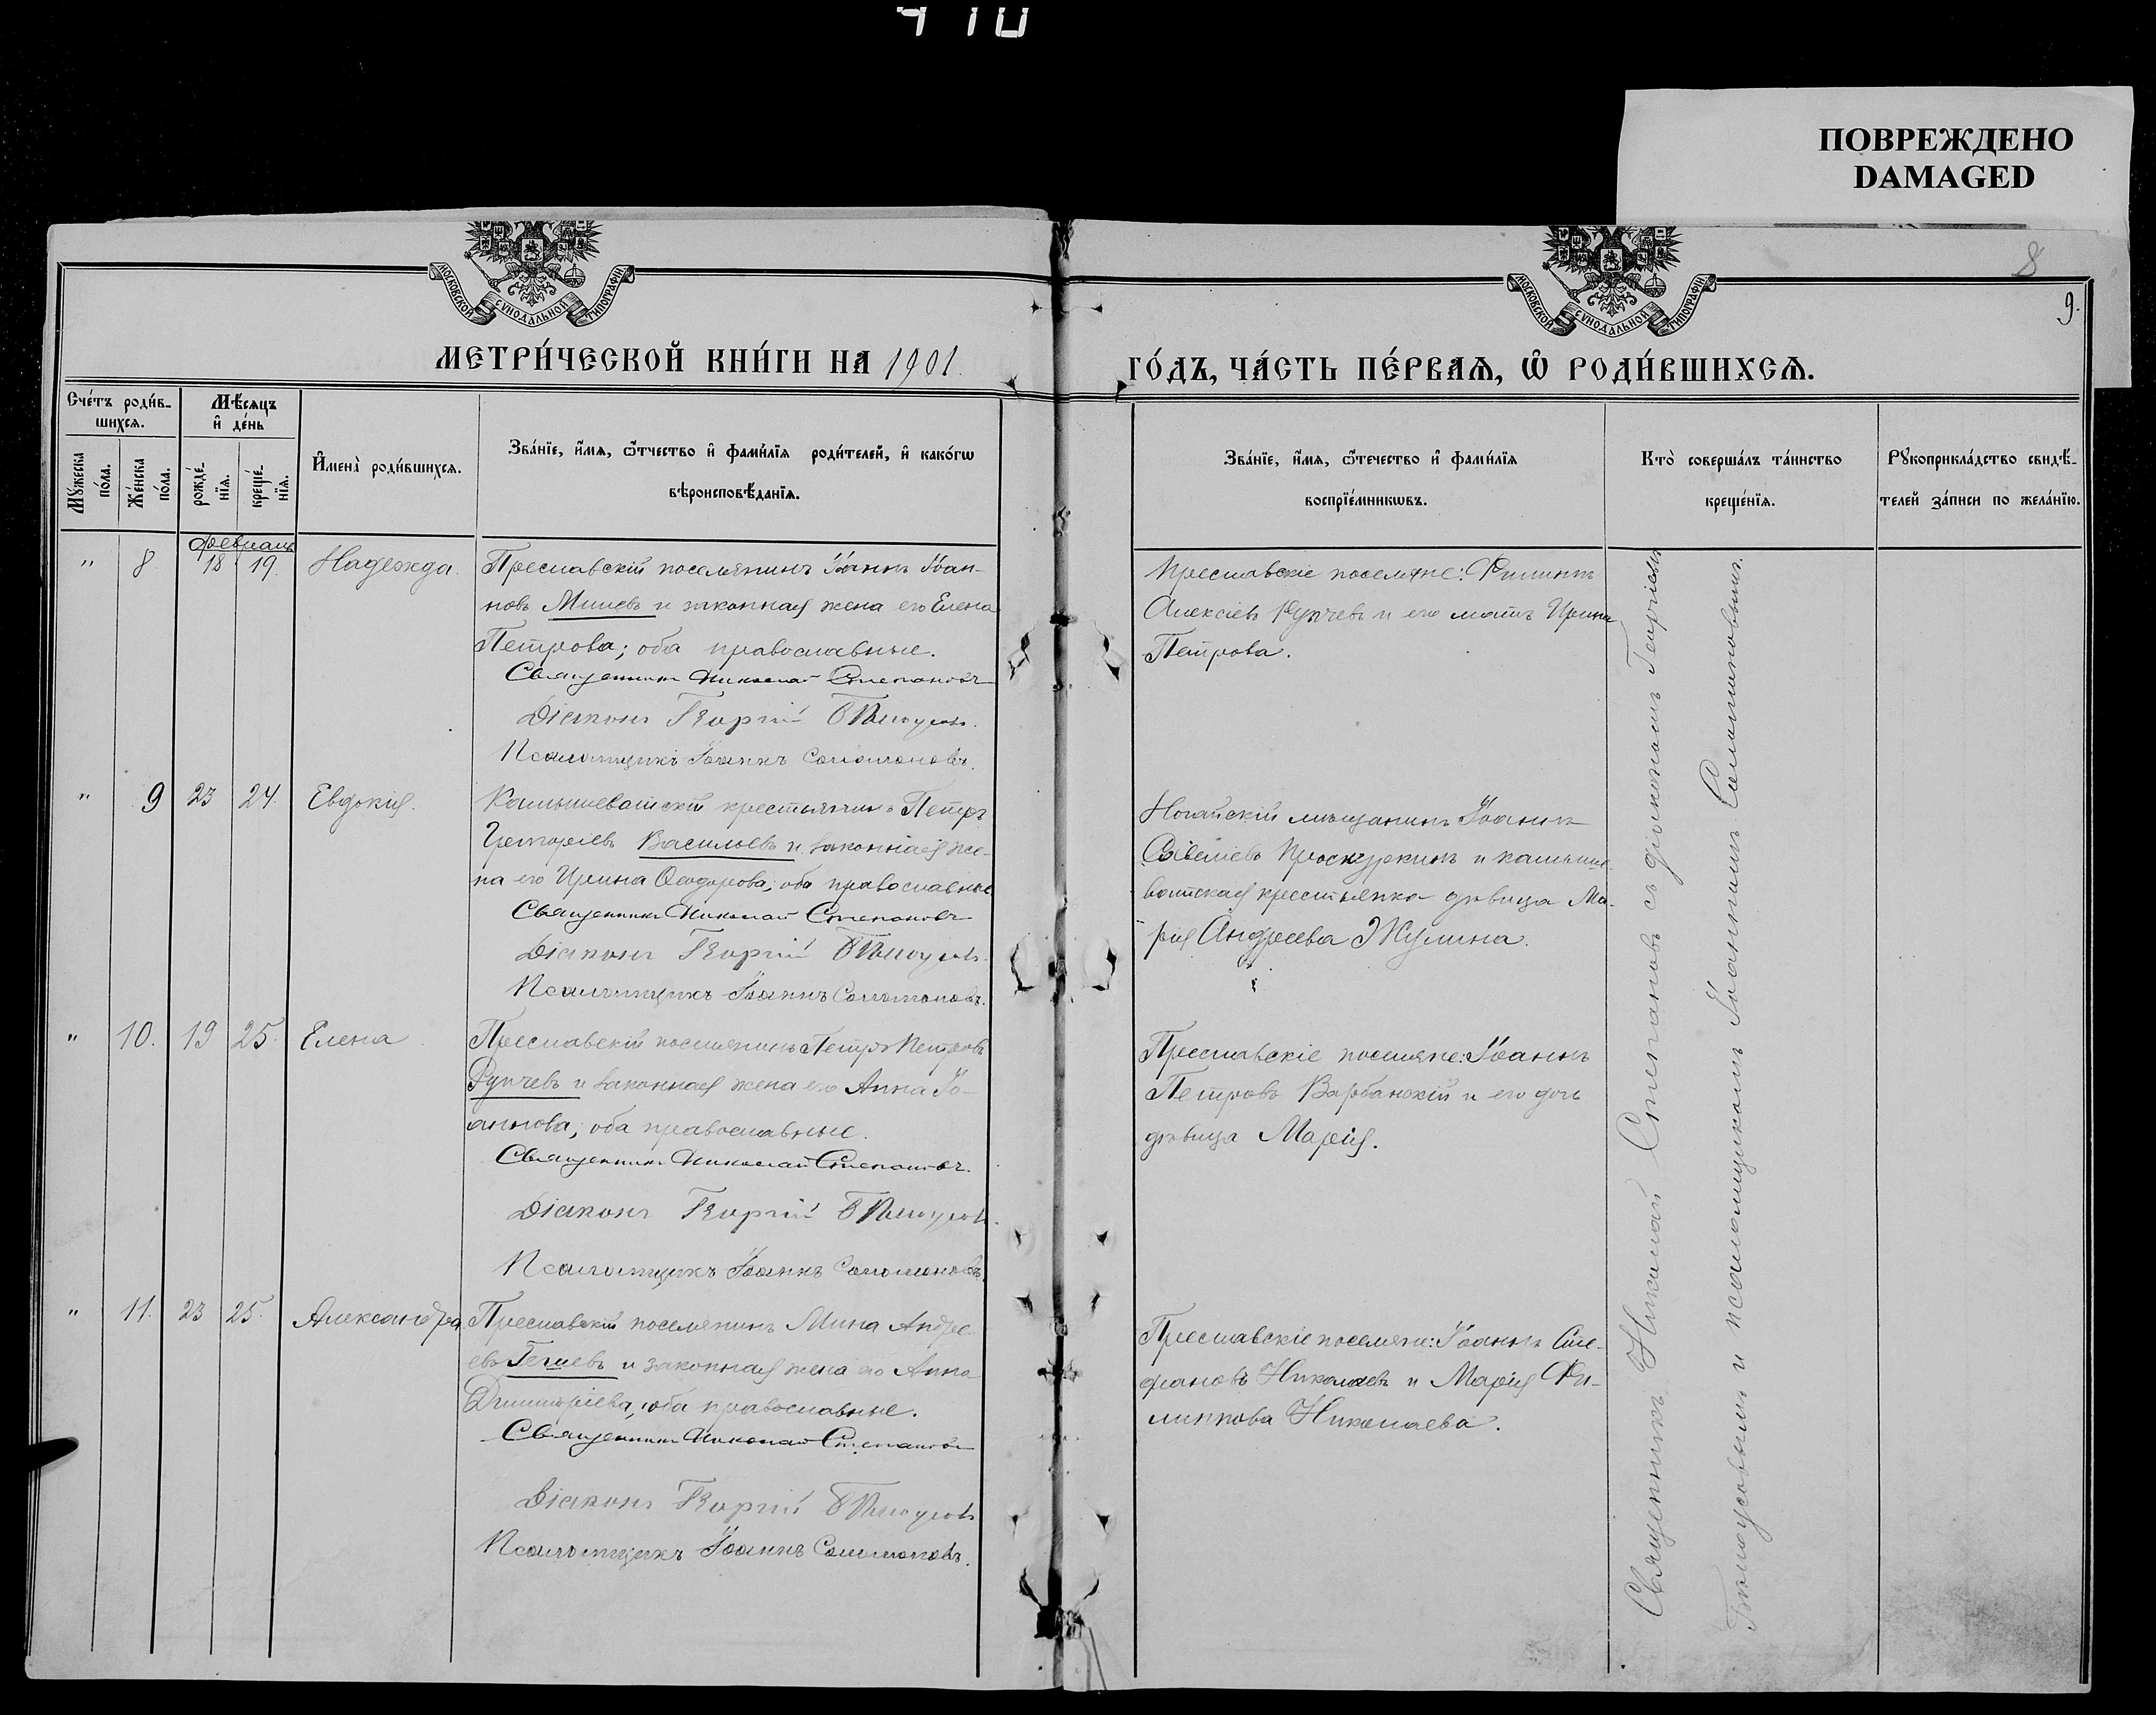 410
ПОВРЕЖДЕНО
DAMAGED
8
9.
МОСКОВСКОЙ СѴНОДАЛЬНОЙ ТИПОГРАФІИ
МОСКОВСКОЙ СѴНОДАЛЬНОЙ ТИПОГРАФІИ
МЕТРИ́ЧЕСКОЙ КНИ́ГИ НА 1901.
ГО́ДЪ, ЧА́СТЬ ПЕ́РВАѦ, Ѡ҆ РОДИ́ВШИХСѦ.
Сче́тъ роди́в-
шихсѧ.
Мꙋ́жеска по́ла.
Же́нска по́ла.
Мѣ́сѧцъ
и҆ де́нь
рожде́-нїѧ.
креще́-нїѧ.
И҆мена̀ роди́вшихсѧ.
Зва́нїе, и҆́мѧ, ѻ҆́тчество и҆ фами́лїѧ роди́телей, и҆ како́гѡ
вѣроисповѣ́данїѧ.
Зва́нїе, и҆́мѧ, ѻ҆́течество и҆ фами́лїѧ
воспрїе́мникѡвъ.
Кто̀ соверша́лъ та́инство
креще́нїѧ.
Рꙋкоприкла́дство свидѣ́-
телей за́писи по жела́нїю.
февраль
" 8 18 19. Надежда.
Преславскій поселянинъ Іоаннъ Іоан-
новъ Мишевъ и законная жена его Елена
Петрова; оба православные.
Священникъ Николай Степановъ
Діаконъ Георгій
Псаломщикъ Іоаннъ Соломоновъ.
Преславскіе поселяне: Филиппъ
Алексіевъ Рупчевъ и его мать Ирина
Петрова.
" 9 23 24. Евдокія.
Камышеватскій крестьянинъ Петръ
Григоріевъ Васильевъ и законная же-
на его Ирина Ѳеодорова; оба православные
Священникъ Николай Степановъ
Діаконъ Георгій
Псаломщикъ Іоаннъ Соломоновъ.
Ногайскій мѣщанинъ Іоаннъ
Савеліевъ Проскурнинъ и камыше-
ватская крестьянка дѣвица Ма-
рія Андреева Жулина.
" 10. 19 25. Елена
Преславскій поселянинъ Петръ Петровъ
Рупчевъ и законная жена его Анна Іо-
аннова; оба православные.
Священникъ Николай Степановъ.
Діаконъ Георгій
Псаломщикъ Іоаннъ Соломоновъ.
Преславскіе поселяне: Іоаннъ
Петровъ Варбанскій и его дочь
дѣвица Марія.
" 11. 23 25. Александра
Преславскій поселянинъ Мина Андре-
евъ Гечевъ и законная жена его Анна
Димитріева, оба православные.
Священникъ Николай Степановъ
Діаконъ Георгій
Псаломщикъ Іоаннъ Соломоновъ.
Преславскіе поселяне: Іоаннъ Сте-
фановъ Николаевъ и Марія Фи-
липпова Николаева.
Священникъ Николай Степановъ съ діакономъ Георгіемъ
и псаломщикомъ Іоанномъ Соломоновымъ.